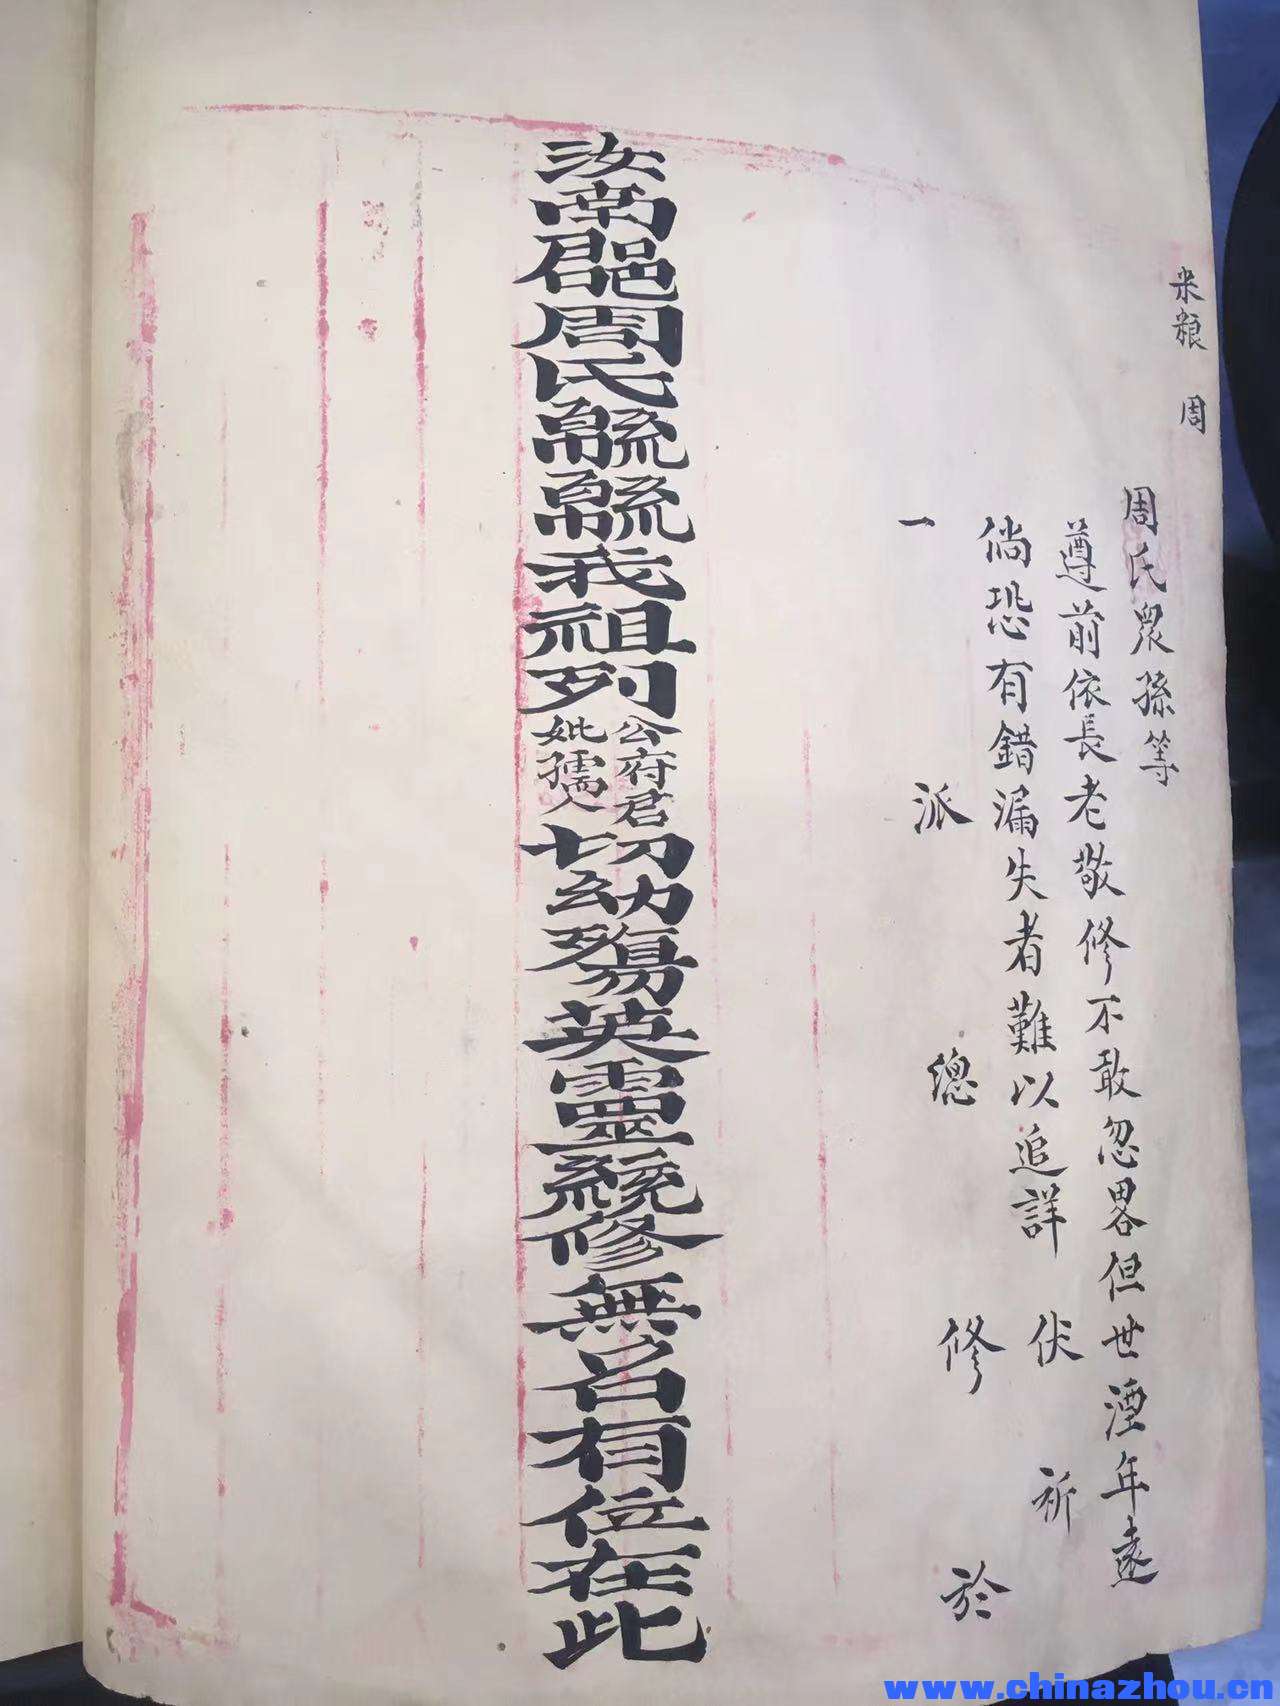 米粮 周
周氏眾孫等
遵前依長老敬修不敢忽畧但世湮年遠
倘恐有錯漏失者難以追詳 伏 祈
一 派 總 修 於
汝南郡周氏緜緜我祖列
公府君
妣孺人
切幼殤英靈統修無名有位在此
www.chinazhou.cn